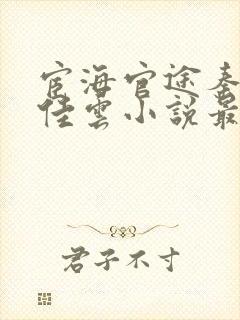 宦海官途秦
佳雲小說最
君子不寸